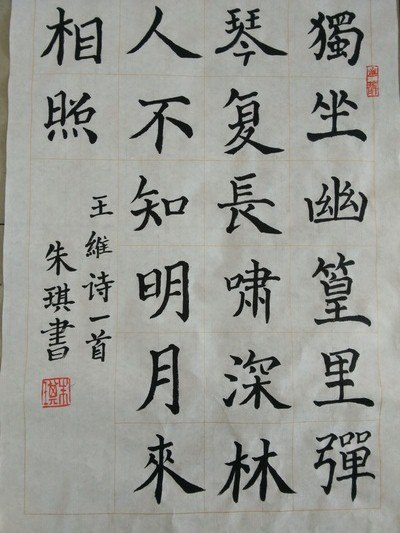 獨坐幽篁里彈
琴复長啸深林
人不知明月來
相照
王維诗一首
朱琪書